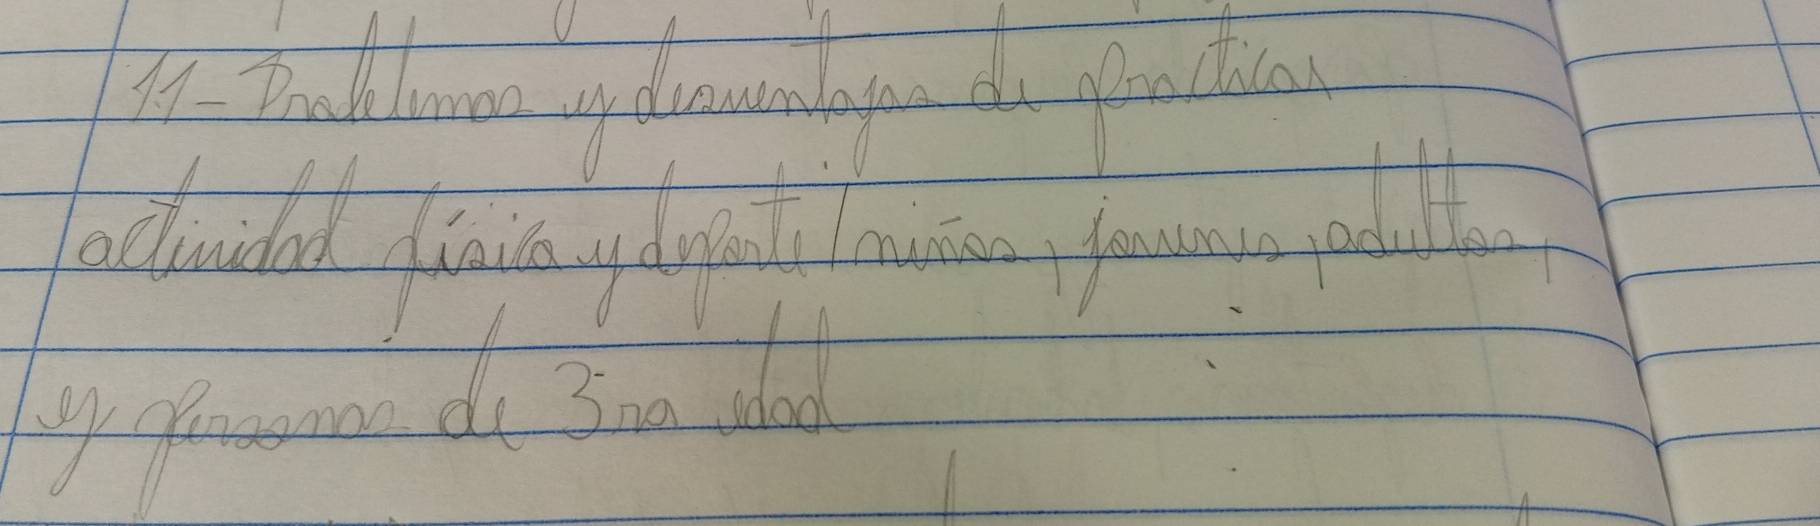 11- Problemas y desventajas de practicar
actividad física y deporte / niños, jovenes, adultos,
y personas de 3ra edad